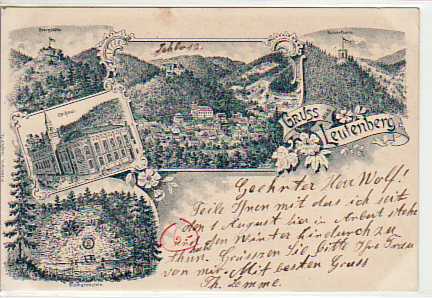 Schloss.
Gruss
Leutenberg
Geehrter Herr Wolf!
Teile Ihnen mit das ich seit
den 1 August hier in Arbeit stehe
und den Winter hindurch zu
thun. Grüssen Sie bitte Ihre Frau
von mir. Mit besten Gruss
Th. Lemme.